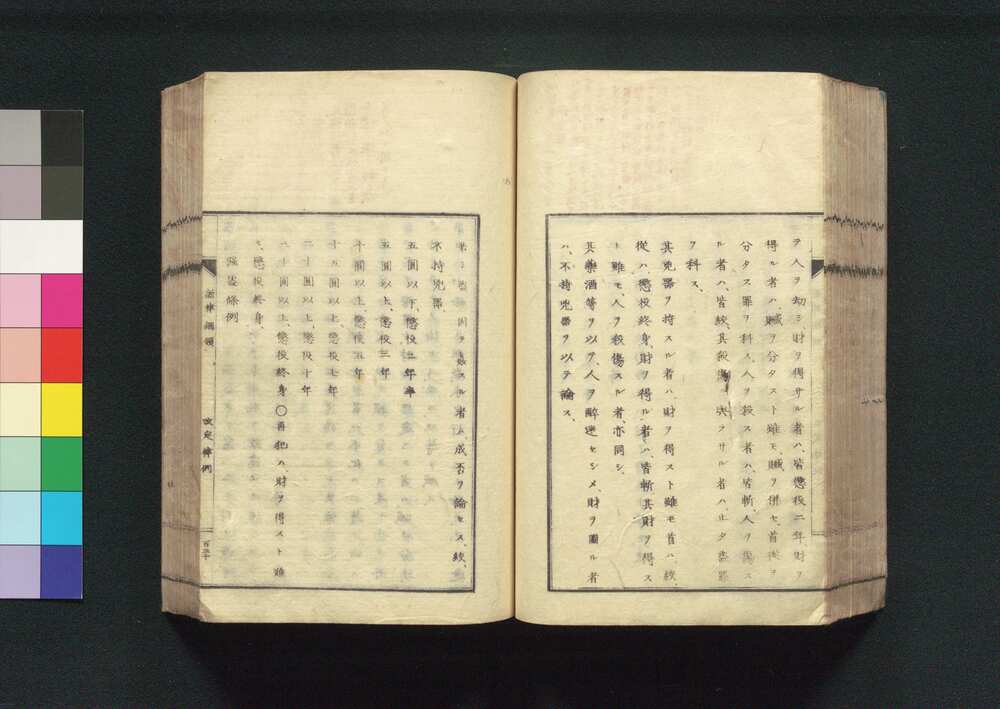 ヲ人ヲ劫シ財ヲ得サル者ハ、皆懲役二年財ヲ
得ル者ハ、贓ヲ分タスト雖モ、贓ヲ併セ、首從ヲ
分タス罪ヲ科ス、人ヲ殺ス者ハ、皆斬、人ヲ傷ス
ル者ハ、皆絞、其殺傷ニ央ラサル者ハ、止タ盗罪
ヲ科ス、
其兇器ヲ持スル者ハ、財ヲ得スト雖モ首ハ、絞
從ハ、懲役終身、財ヲ得ル者ハ、皆斬其財ヲ得ス
ト雖モ、人ヲ殺傷スル者、亦同シ、
其藥酒等ヲ以テ、人ヲ醉迷セシメ、財ヲ圖ル者
ハ、不持兇器ヲ以テ論ス、
スル者ハ、成否ヲ論セス絞、
不持兇器、
五圓以下、懲役二年半
五圓以上、懲役三年
十圓以上、懲役五年
十五圓以上、懲役七年
二十圓以上、懲役十年
三十圓以上、懲役終身〇再犯ハ、財ヲ得スト雖
モ、懲役終身、
強盗條例
法律綱領
改定律例